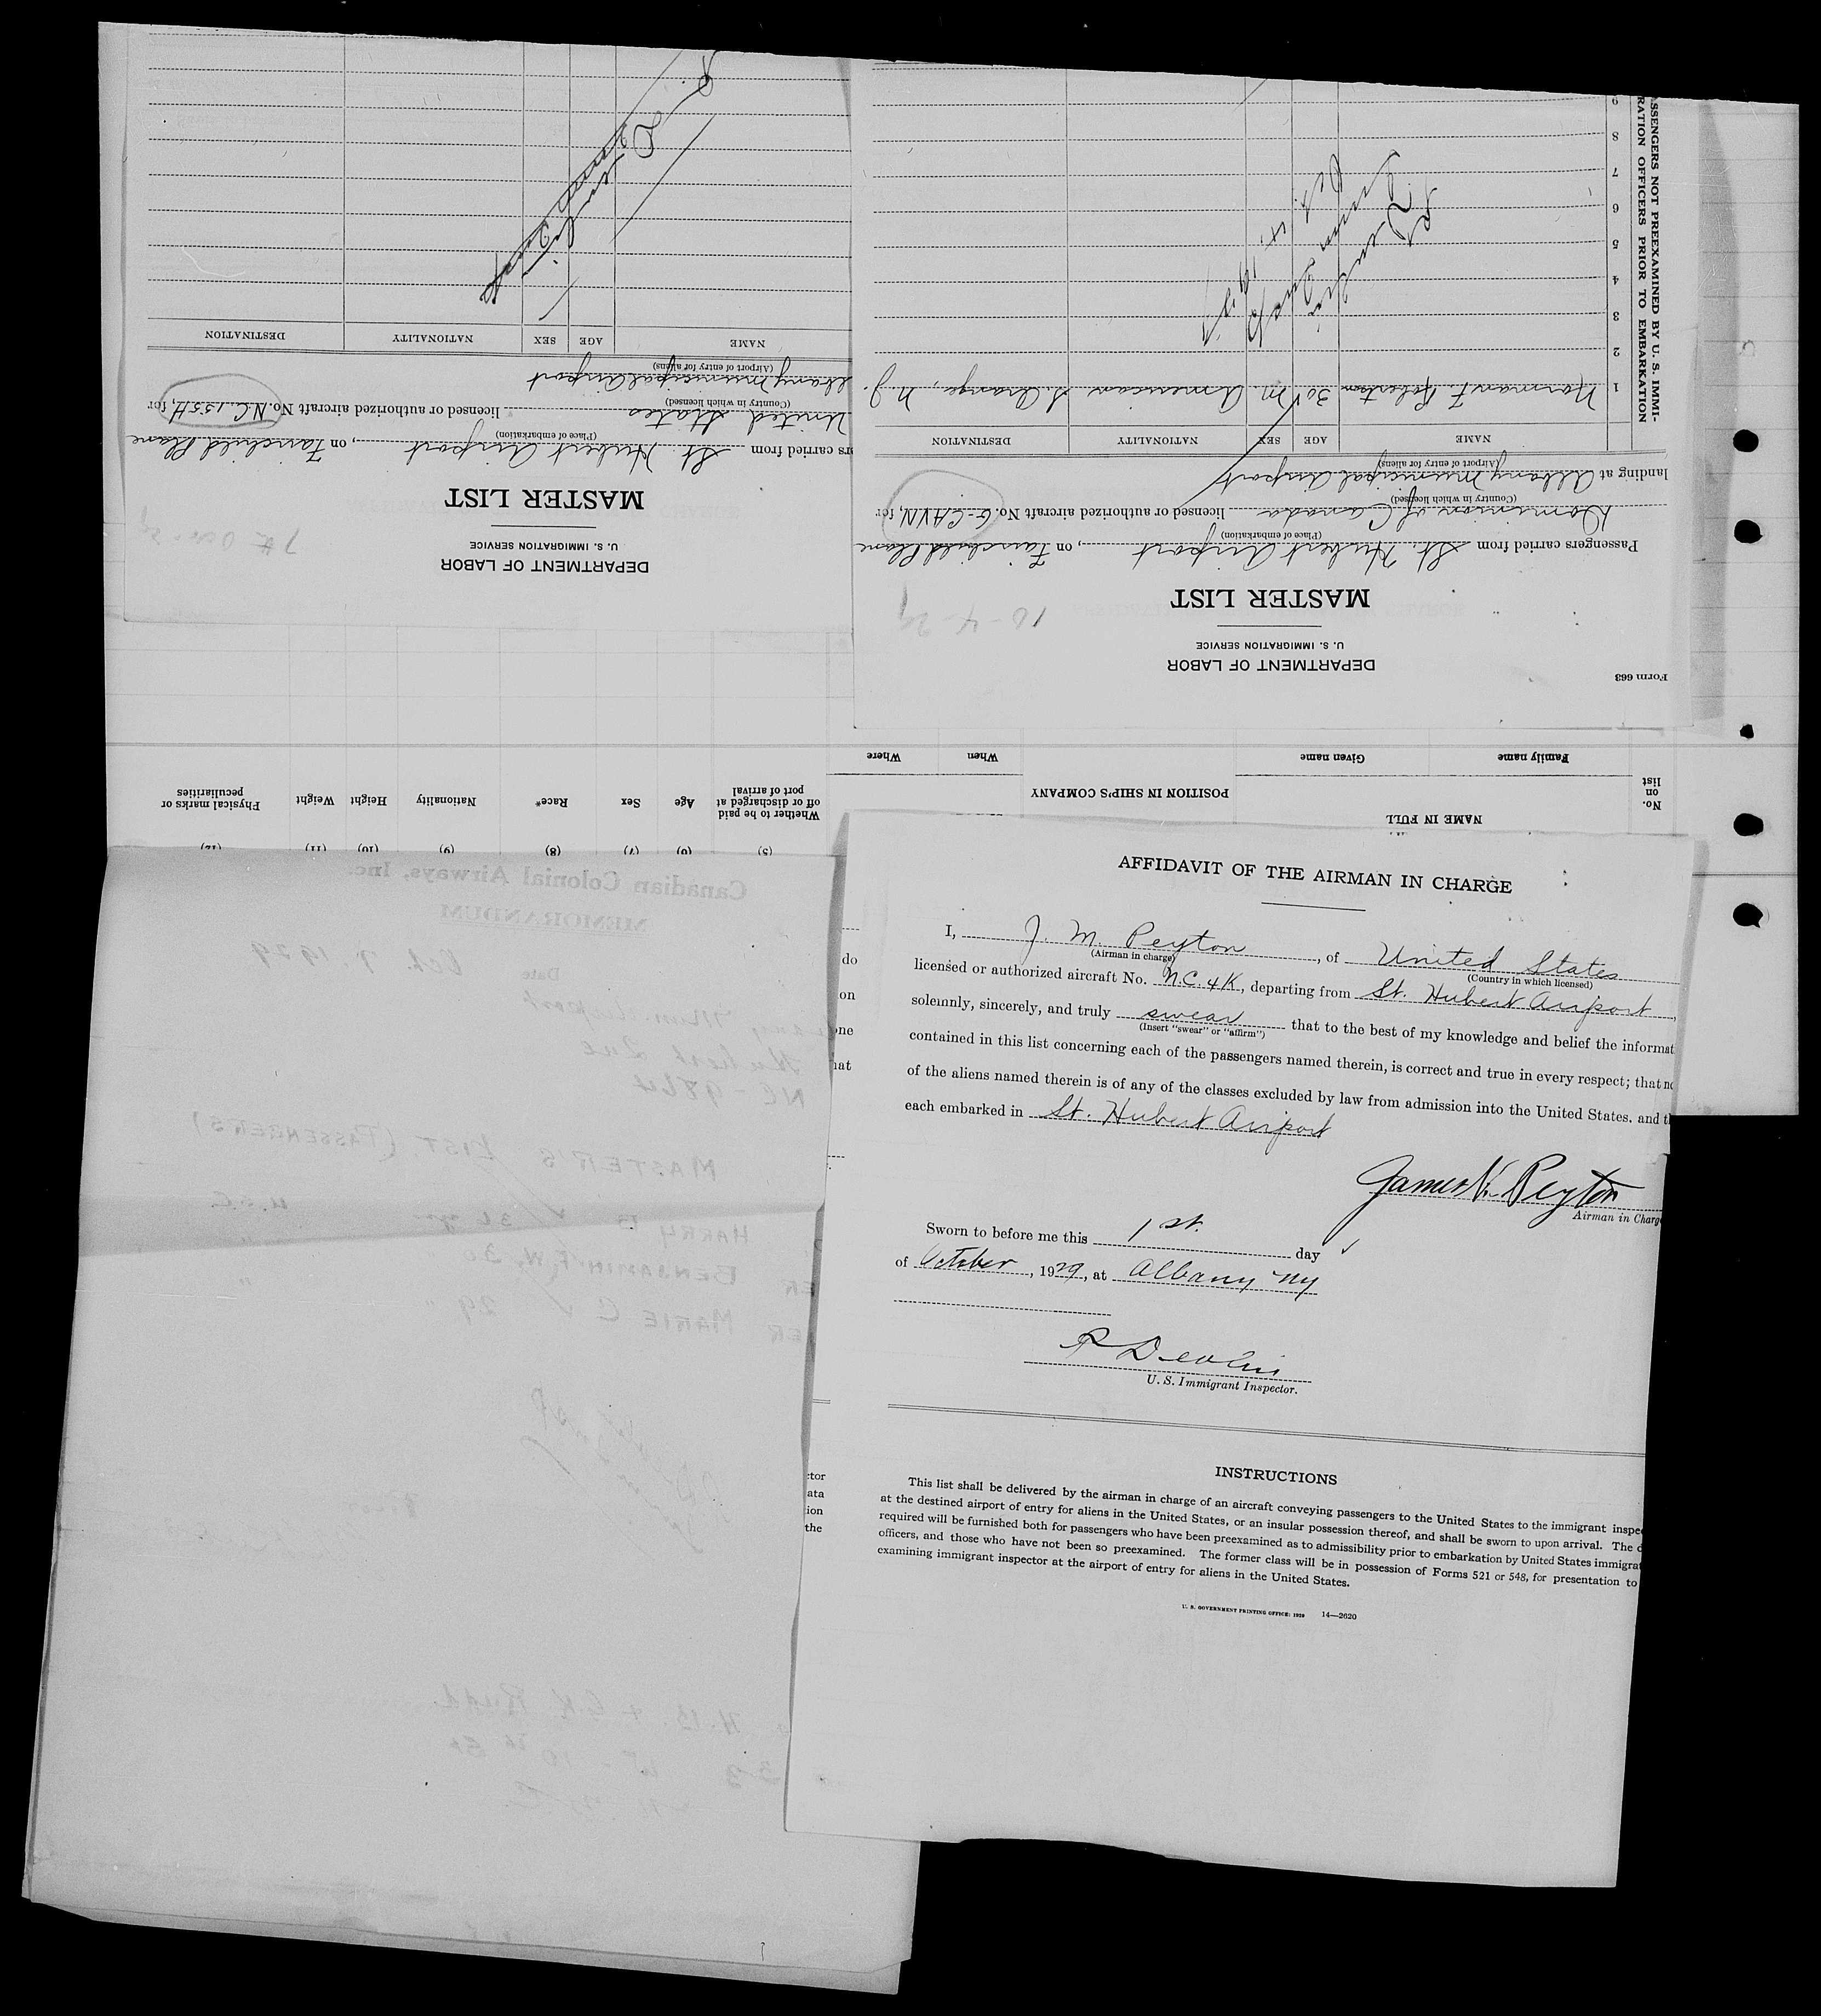 AFFIDAVIT OF THE AIRMAN IN CHARGE
I, J. M. Peyton, of United States
(Airman in charge) (Country in which licensed)
licensed or authorized aircraft No. N.C. 4K, departing from St. Hubert Airport,
solemnly, sincerely, and truly swear that to the best of my knowledge and belief the informat
(Insert "swear" or "affirm")
contained in this list concerning each of the passengers named therein, is correct and true in every respect; that no
of the aliens named therein is of any of the classes excluded by law from admission into the United States, and th
each embarked in St. Hubert Airport
Airman in Charge
Sworn to before me this 1st. day
of October, 1929, at Albany NY
R Devlin
U. S. Immigrant Inspector.
INSTRUCTIONS
This list shall be delivered by the airman in charge of an aircraft conveying passengers to the United States to the immigrant inspe
at the destined airport of entry for aliens in the United States, or an insular possession thereof, and shall be sworn to upon arrival. The d
required will be furnished both for passengers who have been preexamined as to admissibility prior to embarkation by United States immigrat
officers, and those who have not been so preexamined. The former class will be in possession of Forms 521 or 548, for presentation to
examining immigrant inspector at the airport of entry for aliens in the United States.
U. S. GOVERNMENT PRINTING OFFICE: 1929 14—2620
do
on
one
hat
ctor
ata
ion
the
Form 663
DEPARTMENT OF LABOR
U. S. IMMIGRATION SERVICE
MASTER LIST
10-4-29
Passengers carried from St. Hubert Airport, on Fairchild Plane
(Place of embarkation)
Dominion of Canada licensed or authorized aircraft No. G-CAVN, for
(Country in which licensed)
landing at Albany Municipal Airport
(Airport of entry for aliens)
NAME AGE SEX NATIONALITY DESTINATION
1 Norman F. Robertson 30 M. American S. Orange, N.J.
2
3
4
5
6
7
8
9
SSENGERS NOT PREEXAMINED BY U. S. IMMI-
RATION OFFICERS PRIOR TO EMBARKATION
DEPARTMENT OF LABOR
U. S. IMMIGRATION SERVICE
MASTER LIST
rs carried from St. Hubert Airport, on Fairchild Plane
(Place of embarkation)
United States licensed or authorized aircraft No. N.C. 155H, for
(Country in which licensed)
lbany Municipal Airport
(Airport of entry for aliens)
NAME AGE SEX NATIONALITY DESTINATION
No. on list
NAME IN FULL
Family name Given name
POSITION IN SHIP'S COMPANY
When Where
(5) Whether to be paid off or discharged at port of arrival
(6) Age
(7) Sex
(8) Race*
(9) Nationality
(10) Height
(11) Weight
(12) Physical marks or peculiarities
Canadian Colonial Airways, Inc.
MEMORANDUM
Date Oct. 7, 1929
NC 9864
MASTER'S LIST (PASSENGERS)
HARRY B 36 yrs U.S.C.
BENJAMIN F.W. 30 "
MARIE C 29 "